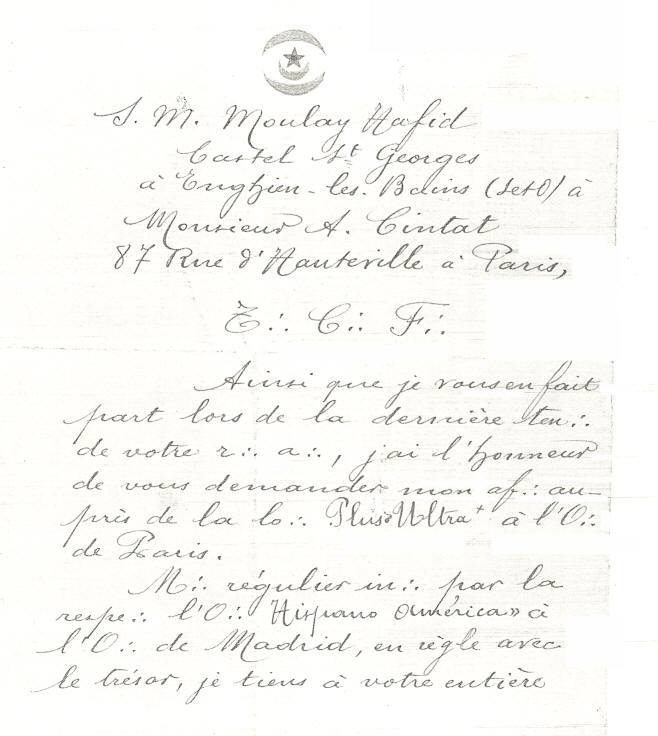 S. M. Moulay Hafid
Castel St Georges
à Enghien-les-Bains (SetO) à
Monsieur A. Cintat
87 Rue d'Hauteville à Paris,
T∴ C∴ F∴
Ainsi que je vous en fait
part lors de la dernière ten∴
de votre r∴ a∴, j'ai l'honneur
de vous demander mon af∴ au-
près de la lo∴ Plus Ultra à l'O∴
de Paris.
M∴ régulier in∴ par la
respe∴ l'O∴ Hispano América» à
l'O∴ de Madrid, en règle avec
le trésor, je tiens à votre entière